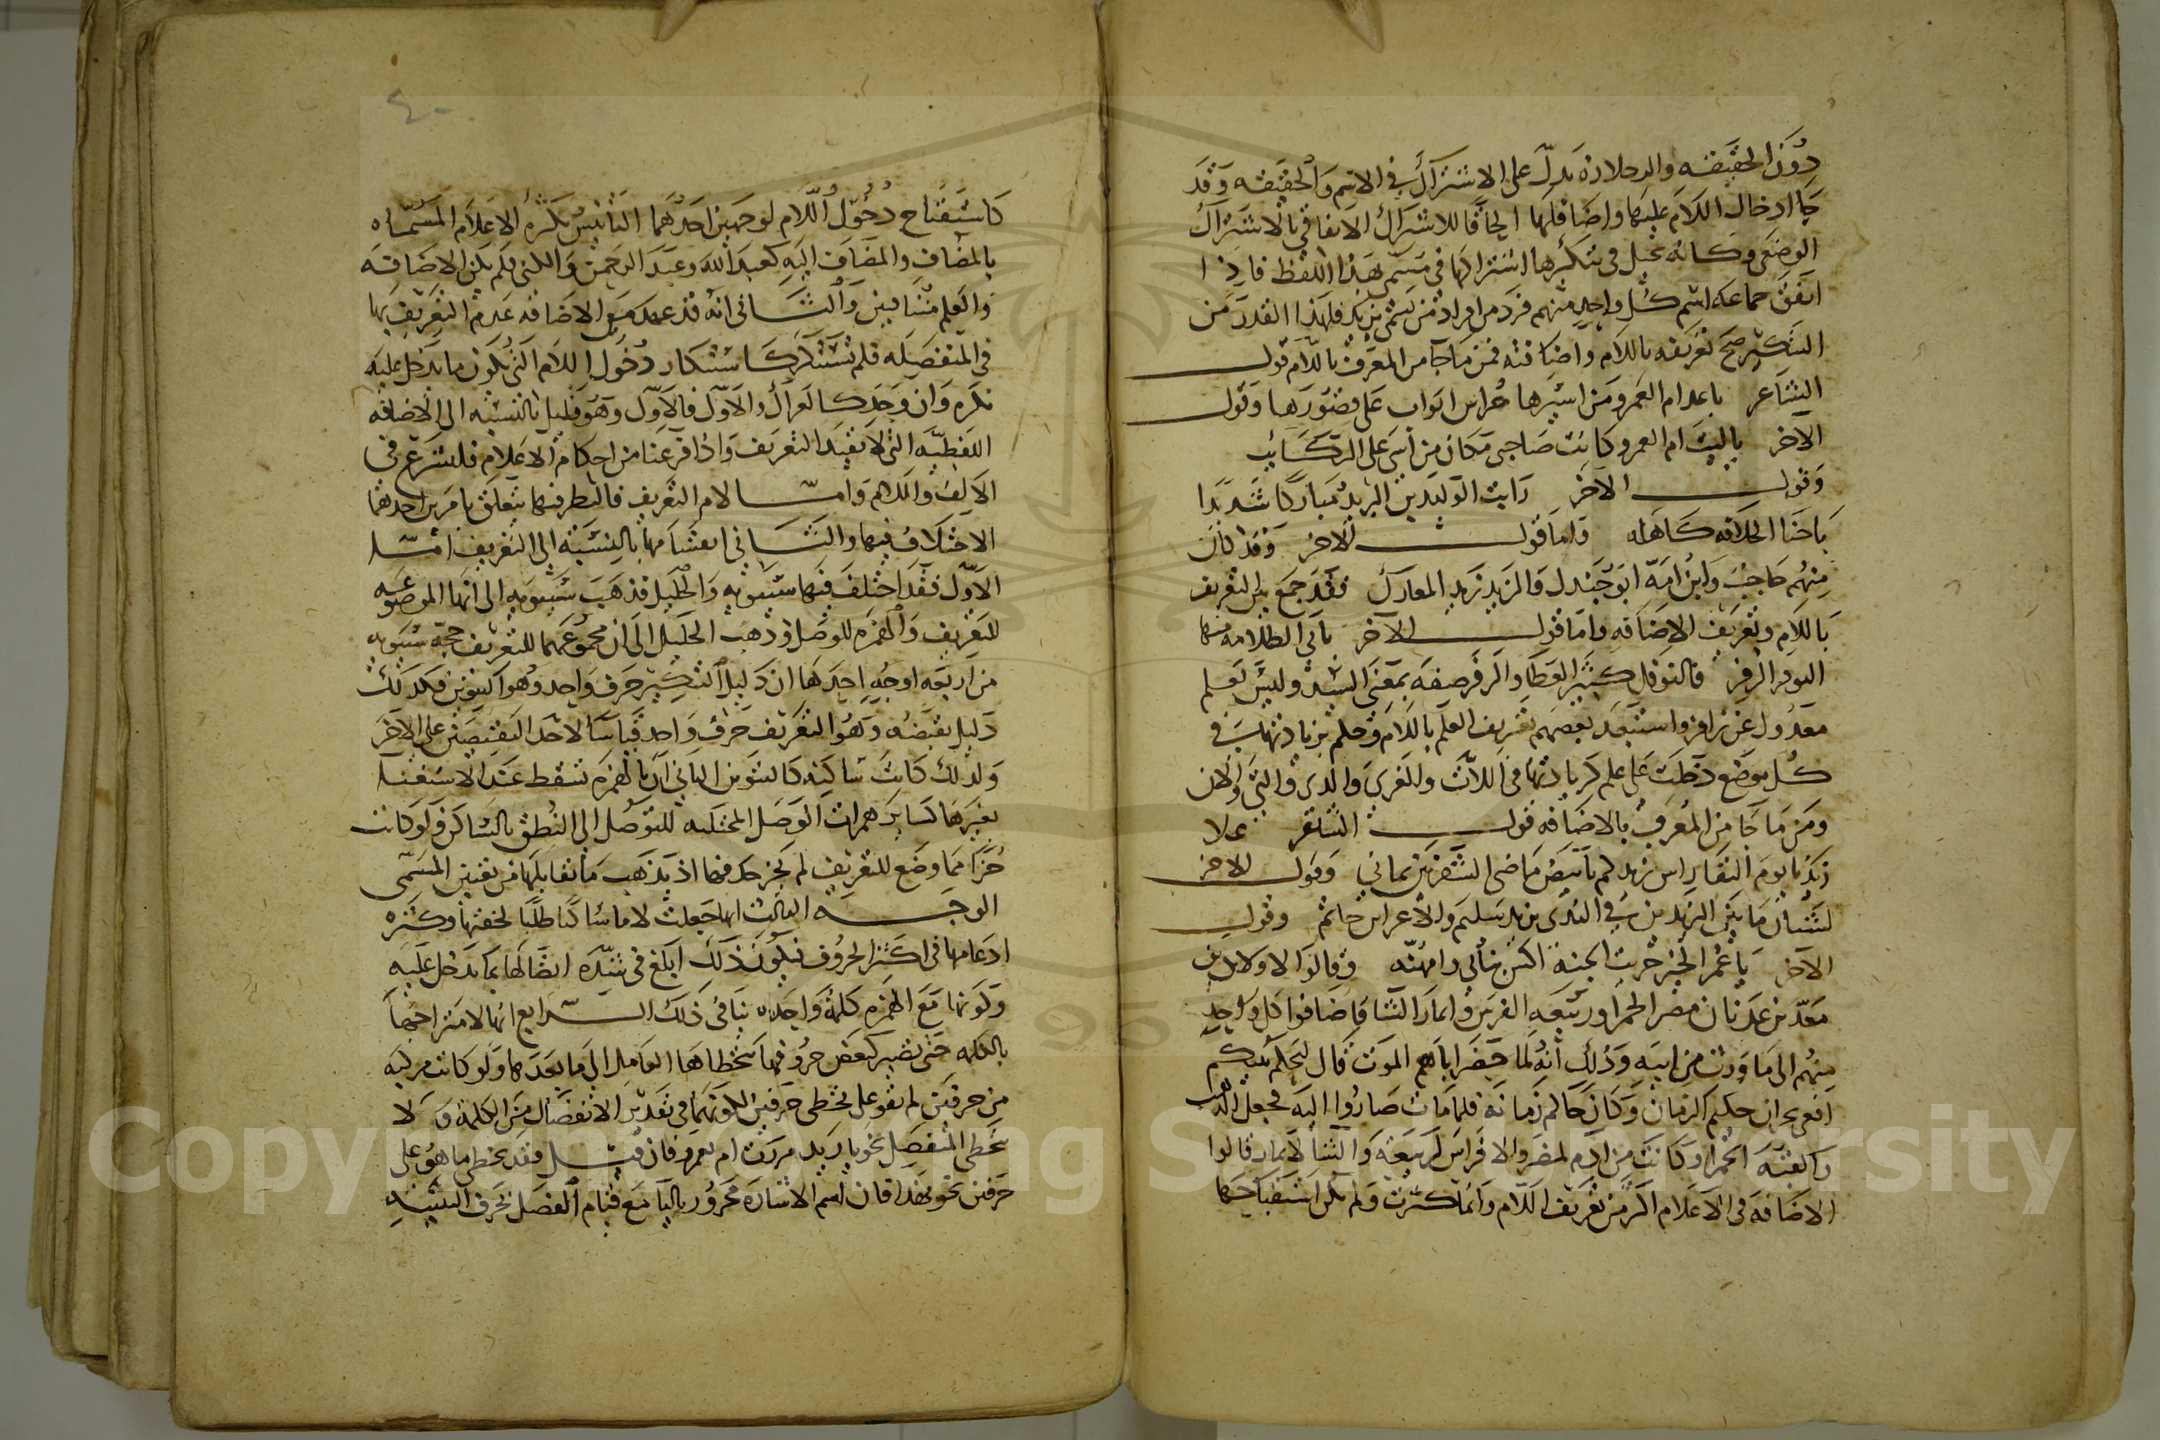 دون الحقيقه والرجلان يدل على الاشتراك في الاسم والحقيقه وقد
جا ادخال اللام عليها واضافتها الحاقا للاشتراك الاتفاقي بالاشتراك
الوضعي وكانه تخيل في تنكيرها اشتراكها في مسمى بهذا اللفظ فاذا
اتفق جماعه اسم كل واحد منهم فرد من افراد من يسمى بزيد فلهذا القدر من
التنكير صح تعريفه باللام واضافته فمن ما جا من المعرف باللام قول
الشاعر باعد ام العمرو من اسيرها حراس ابواب على قصورها وقول
الاخر ياليت ام العمرو كانت صاحبي مكان من اسى على الركايب
وقول الاخر رايت الوليد بن اليزيد مباركا شديدا
باحنا الخلافه كاهله واما قول الاخر وقد كان
منهم حاجب وابن امه ابو جندل والزيد زيد المعارك فقد جمع بين التعريف
باللام وتعريف الاضافه واما قول الاخر يابى الظلامه منه
النوفل الزفر فالنوفل كثير العطا والزفر صفه بمعنى السيد وليس بعلم
معدول عن زافر واستبعد بعضهم تعريف العلم باللام وحكم بزيادتها في
كل موضع دخلت على علم كزيادتها في اللات والعزى والذي والتي والان
ومن ما جا من المعرف بالاضافه قول الشاعر علا
زيدنا يوم النقا راس زيدكم بابيض ماضي الشفرتين يماني وقول الاخر
لشتان ما بين اليزيدين في الندى يزيد سليم والاغر ابن حاتم وقول
الاخر يا عمر الخير جزيت الجنه اكس بنياتي وامهنه وقالوا لاولاد
معد بن عدنان مضر الحمرا وربيعه الفرس وانمار الشا فاضافوا كل واحد
منهم الى ما ورث من ابيه وذلك انه لما حضر اباهم الموت قال ليحكم بينكم
افعى نجران حكيم الزمان وكان حاكم زمانه فلما مات صاروا اليه فجعل الذهب
والقبه الحمرا وكانت من ادم لمضر والافراس لربيعه والشا لانمار وقالوا
الاضافه في الاعلام اكثر من تعريف اللام وانما كثرت ولم يكن استقباحها
٤٠
كاستقباح دخول اللام لوجهين احدهما التانيس بكثره الاعلام المسماه
بالمضاف والمضاف اليه كعبد الله وعبد الرحمن والكنى فلم يكن الاضافه
والعلم متنافيين والثاني انه قد عهد مع الاضافه عدم التعريف بها
في المنفصله فلم تستنكر كاستنكار دخول اللام التي يكون ما تدخل عليه
نكره وان وجد كالعراك والاول فالاول وهو قليل بالنسبه الى الاضافه
اللفظيه التي لا تفيد التعريف واذا فرغنا من احكام الاعلام فلنشرع في
الالف واللام وامـا لام التعريف فالنظر فيها يتعلق بامرين احدهما
الاختلاف فيها والثاني انقسامها بالنسبه الى التعريف امـا
الاول فقد اختلف فيها سيبويه والخليل فذهب سيبويه الى انها الموضوعه
للتعريف والهمزه للوصل وذهب الخليل الى ان مجموعهما للتعريف حجه سيبويه
من اربعه اوجه احدها ان دليل التنكير حرف واحد وهو التنوين فكذلك
دليل نقيضه وهو التعريف حرف واحد قياسا لاحد النقيضين على الاخر
ولذلك كانت ساكنه كالتنوين الثاني ان الهمزه تسقط عند الاستغنا
بغيرها كساير همزات الوصل المجتلبه للتوصل الى النطق بالساكن ولو كانت
جزا مما وضع للتعريف لم يجز حذفها اذ يذهب ما يقابلها من تعيين المسمى
الوجـه الثالث انها جعلت لاما ساكنا طلبا لخفتها وكثره
ادغامها في اكثر الحروف فيكون ذلك ابلغ في شده اتصالها بما تدخل عليه
وكونها مع الهمزه كلمه واحده ينافي ذلك الـرابع انها لامتزاجها
بالكلمه حتى تصير كبعض حروفها يتخطاها العامل الى ما بعدها ولو كانت مركبه
من حرفين لم يقو على تخطي حرفين لكونهما في تقدير الانفصال من الكلمه ولا
يتخطى المنفصل نحو يا زيد مررت ام بعمرو فان قيـل فقد تخطى ما هو على
حرفين نحو بهذا فان اسم الاشاره مجرور بالبا مع قيام الفصل بحرف التنبيه